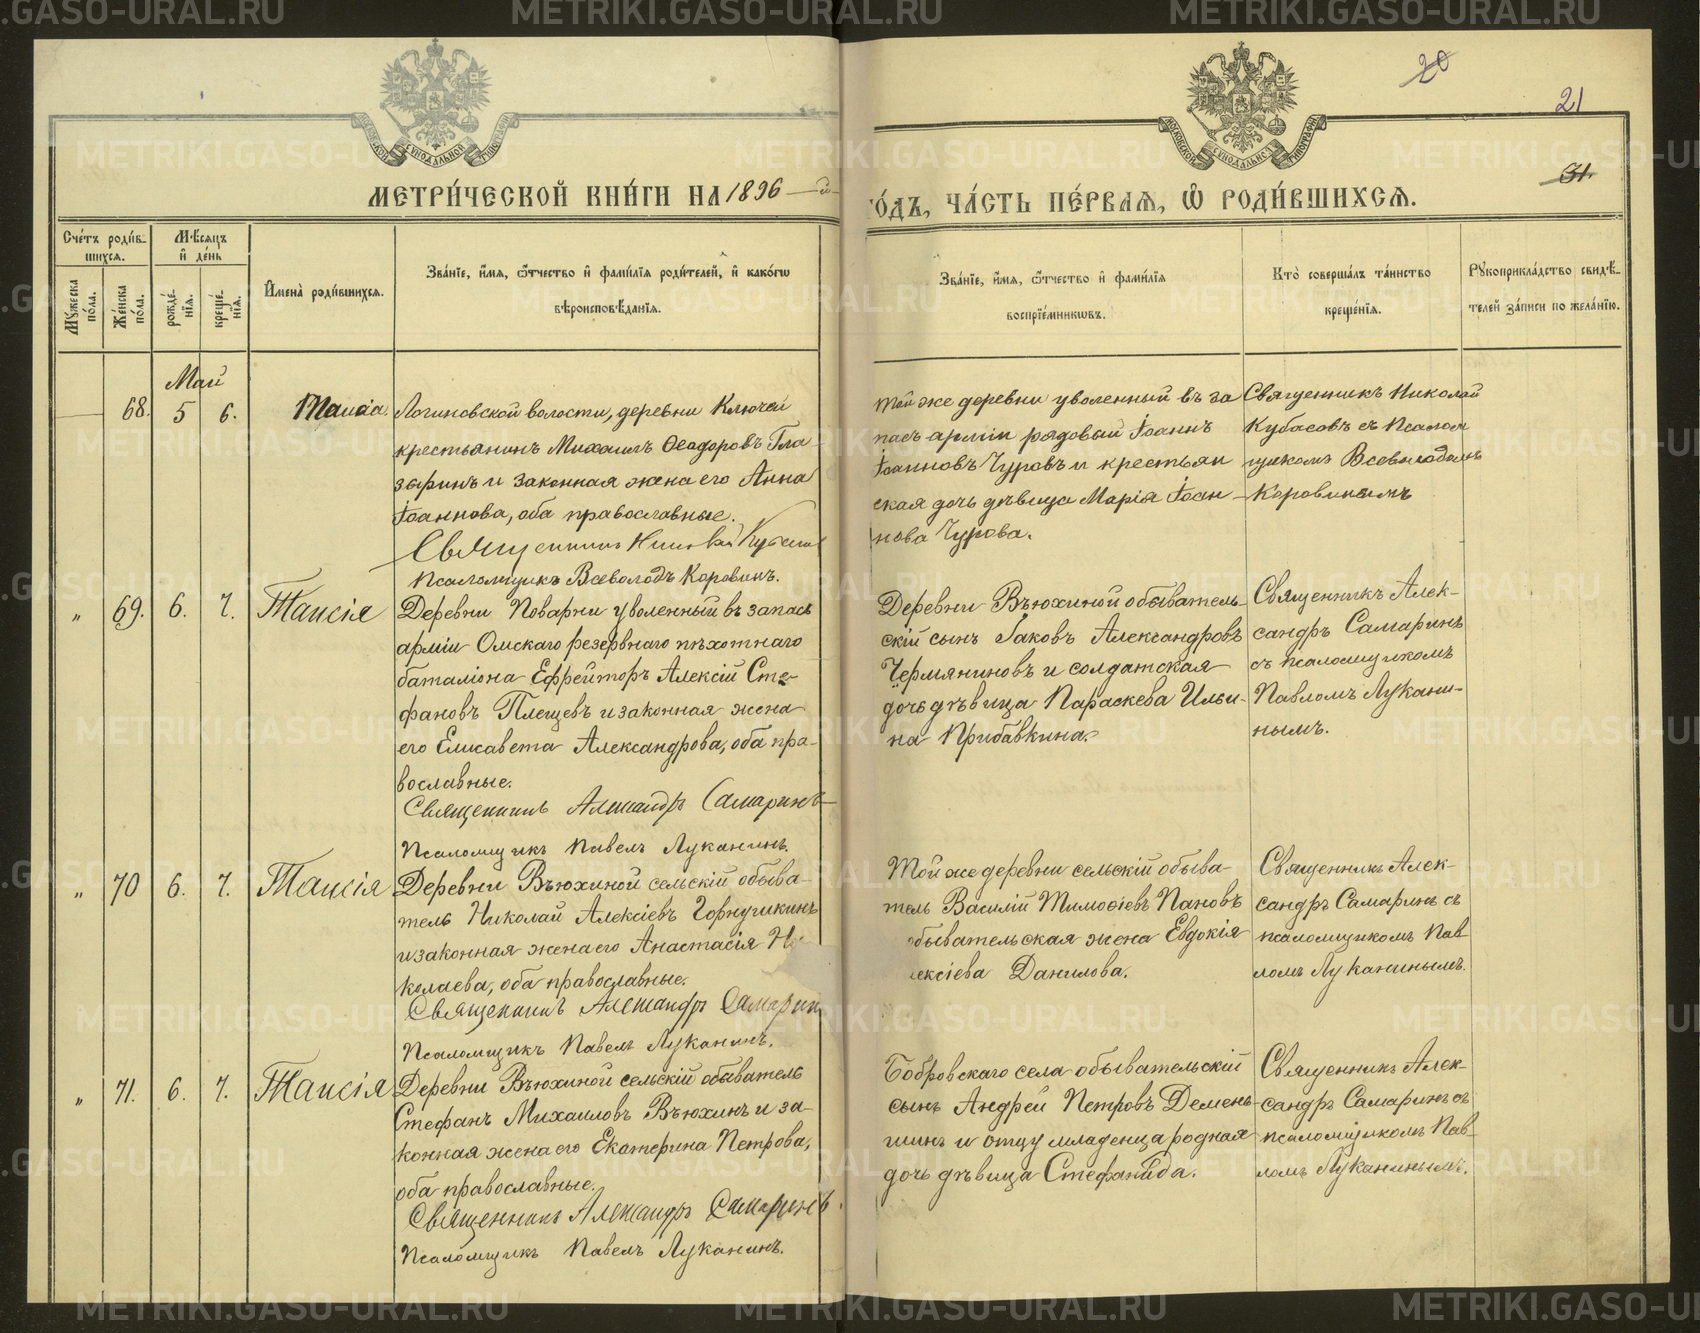 METRIKI.GASO-URAL.RU
20
21
31.
МОСКОВСКОЙ СѴНОДАЛЬНОЙ ТИПОГРАФІИ
МОСКОВСКОЙ СѴНОДАЛЬНОЙ ТИПОГРАФІИ
МЕТРИ́ЧЕСКОЙ КНИ́ГИ НА 1896 — й
ГО́ДЪ, ЧА́СТЬ ПЕ́РВАѦ, Ѡ҆ РОДИ́ВШИХСѦ.
Сче́тъ роди́в-
шихся.
Мꙋ́жеска по́ла.
Же́нска по́ла.
Мѣ́сяцъ
и҆ де́нь
рожде́-
нїя.
креще́-
нїя.
И҆мена̀ роди́вшихся.
Зва́нїе, и҆́мя, ѻ҆́тчество и҆ фами́лїя роди́телей, и҆ како́гѡ
вѣроисповѣ́данїя.
Зва́нїе, и҆́мя, ѻ҆́тчество и҆ фами́лїя
воспрїе́мникѡвъ.
Кто̀ соверша́лъ та́инство
креще́нїя.
Рꙋкоприкла́дство свидѣ́-
телей за́писи по жела́нїю.
Май
68. 5 6. Таисія.
Логиновской волости, деревни Ключей
крестьянинъ Михаилъ Ѳеодоровъ Гла
зыринъ и законная жена его Анна
Іоаннова, оба православные.
Священникъ Николай Кубасов
Псаломщикъ Всеволодъ Коровинъ.
Той же деревни уволенный въ за
пасъ арміи рядовый Іоаннъ
Іоанновъ Чуровъ и крестьян
ская дочь дѣвица Марія Іоан-
нова Чурова.
Священникъ Николай
Кубасовъ съ Псалом
щикомъ Всеволодомъ
Коровинымъ
" 69. 6. 7. Таисія
Деревни Поварни уволенный въ запасъ
арміи Омскаго резервнаго пѣхотнаго
баталіона Ефрейторъ Алексій Сте-
фановъ Плещевъ и законная жена
его Елисавета Александрова, оба пра-
вославные.
Священникъ Александръ Самаринъ
Псаломщикъ Павелъ Луканинъ.
Деревни Вьюхиной обыватель-
скій сынъ Іаковъ Александровъ
Чермяниновъ и солдатская
дочь дѣвица Параскева Ильи-
на Прибавкина.
Священникъ Алек-
сандръ Самаринъ
съ псаломщикомъ
Павломъ Лукани-
нымъ.
" 70 6. 7. Таисія
Деревни Вьюхиной сельскій обыва-
тель Николай Алексіевъ Горнушкинъ
и законная жена его Анастасія Ни
колаева, оба православные.
Священникъ Александръ Самарин
Псаломщикъ Павелъ Луканинъ.
Той же деревни сельскій обыва-
тель Василій Тимоѳіевъ Пановъ
обывательская жена Евдокія
лексіева Данилова.
Священникъ Алек-
сандръ Самаринъ съ
псаломщикомъ Пав
ломъ Луканинымъ.
" 71. 6. 7. Таисія
Деревни Вьюхиной сельскій обыватель
Стефанъ Михаиловъ Вьюхинъ и за-
конная жена его Екатерина Петрова,
оба православные.
Священникъ Александръ Самаринъ.
Псаломщикъ Павелъ Луканинъ.
Бобровскаго села обывательскій
сынъ Андрей Петровъ Демень-
шинъ и отцу младенца родная
дочь дѣвица Стефанида.
Священникъ Алек-
сандръ Самаринъ съ
псаломщикомъ Пав-
ломъ Луканинымъ.